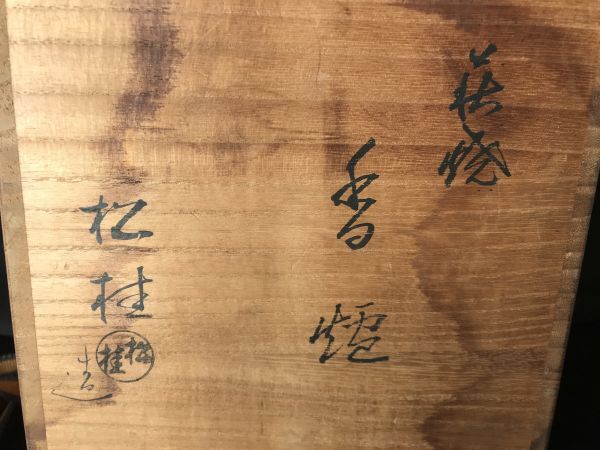 萩焼
香爐
松桂造
松桂